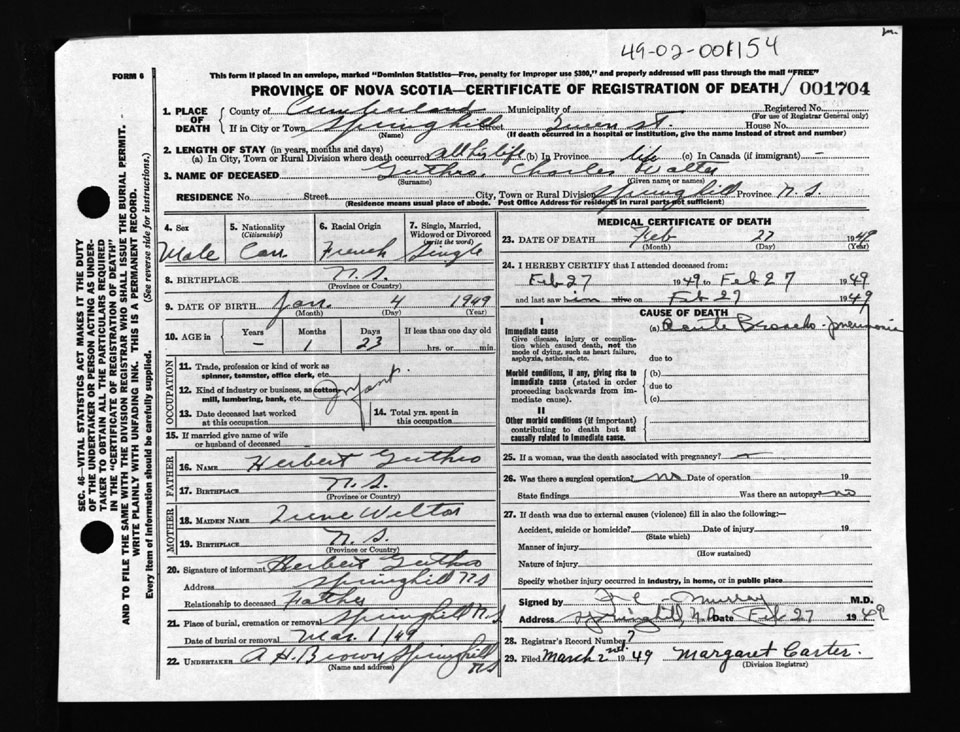 49-02-001154
FORM 6
This form if placed in an envelope, marked "Dominion Statistics—Free, penalty for improper use $300," and properly addressed will pass through the mail "FREE"
PROVINCE OF NOVA SCOTIA—CERTIFICATE OF REGISTRATION OF DEATH 001704
SEC. 46—VITAL STATISTICS ACT MAKES IT THE DUTY
OF THE UNDERTAKER OR PERSON ACTING AS UNDER-
TAKER TO OBTAIN ALL THE PARTICULARS REQUIRED
IN THE "CERTIFICATE OF REGISTRATION OF DEATH"
AND TO FILE THE SAME WITH THE DIVISION REGISTRAR WHO SHALL ISSUE THE BURIAL PERMIT.
WRITE PLAINLY WITH UNFADING INK. THIS IS A PERMANENT RECORD.
Every item of information should be carefully supplied. (See reverse side for instructions.)
1. PLACE OF DEATH
County of Cumberland Municipality of Registered No.
(For use of Registrar General only)
If in City or Town Springhill Street Queen St. House No.
(Name) (If death occurred in a hospital or institution, give the name instead of street and number)
2. LENGTH OF STAY (in years, months and days)
(a) In City, Town or Rural Division where death occurred all his life (b) In Province life (c) In Canada (if immigrant) —
3. NAME OF DECEASED Guthro Charles Walter
(Surname) (Given name or names)
RESIDENCE No. Street City, Town or Rural Division Springhill Province N.S.
(Residence means usual place of abode. Post Office Address for residents in rural parts not sufficient)
4. Sex Male
5. Nationality (Citizenship) Can
6. Racial Origin French
7. Single, Married, Widowed or Divorced (write the word) Single
8. BIRTHPLACE N.S.
(Province or Country)
9. DATE OF BIRTH Jan. 4 1949
(Month) (Day) (Year)
10. AGE in Years Months Days If less than one day old
— 1 23 hrs. or min.
OCCUPATION
11. Trade, profession or kind of work as
spinner, teamster, office clerk, etc.
12. Kind of industry or business, as cotton
mill, lumbering, bank, etc. Infant
13. Date deceased last worked
at this occupation
14. Total yrs. spent in
this occupation
15. If married give name of wife
or husband of deceased
FATHER
16. NAME Herbert Guthro
17. BIRTHPLACE N.S.
(Province or Country)
MOTHER
18. MAIDEN NAME Irene
19. BIRTHPLACE N.S.
(Province or Country)
20. Signature of informant Herbert Guthro
Address Springhill NS
Relationship to deceased Father
21. Place of burial, cremation or removal Springhill N.S.
Date of burial or removal Mar 1/49
22. UNDERTAKER A H. Brown Springhill NS
(Name and address)
MEDICAL CERTIFICATE OF DEATH
23. DATE OF DEATH Feb 27 1949
(Month) (Day) (Year)
24. I HEREBY CERTIFY that I attended deceased from:
Feb 27 1949 to Feb 27 1949
and last saw him alive on Feb 27 1949
CAUSE OF DEATH
I
Immediate cause (a) Acute Broncho-pneumonia
Give disease, injury or complica-
tion which caused death, not the
mode of dying, such as heart failure,
asphyxia, asthenia, etc. due to
Morbid conditions, if any, giving rise to (b)
immediate cause (stated in order due to
proceeding backwards from im-
mediate cause). (c)
II
Other morbid conditions (if important)
contributing to death but not
causally related to immediate cause.
25. If a woman, was the death associated with pregnancy? —
26. Was there a surgical operation? no Date of operation 19
State findings Was there an autopsy? no
27. If death was due to external causes (violence) fill in also the following:—
Accident, suicide or homicide? Date of injury 19
(State which)
Manner of injury
(How sustained)
Nature of injury
Specify whether injury occurred in industry, in home, or in public place
Signed by Murray M.D.
Address Springhill, N.S. Date Feb 27 1949
28. Registrar's Record Number 7
29. Filed March 2nd. 1949 Margaret Carter.
(Division Registrar)